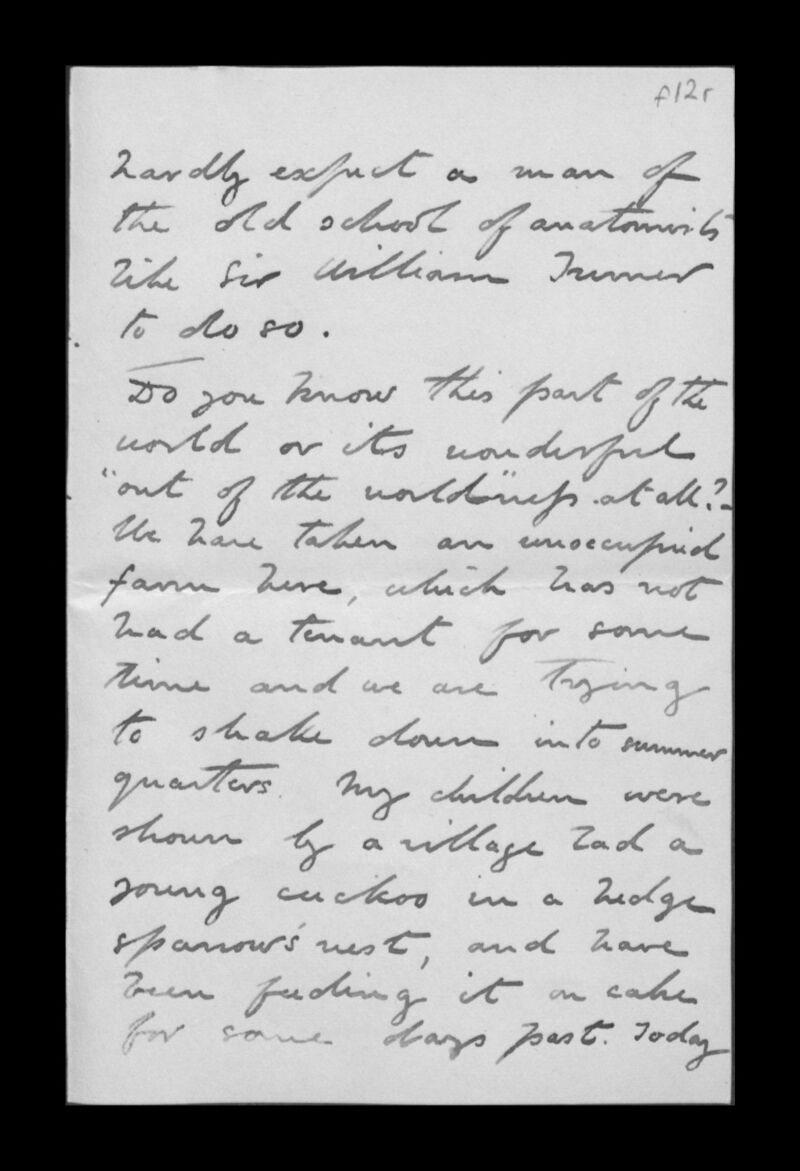 f12r
hardly expect a man of
the old school of anatomists
like Sir William Turner
to do so.
Do you know this part of the
world or its wonderful
"out of the world"ness at all?-
We have taken an unoccupied
farm here, which has not
had a tenant for some
time and we are trying
to shake down into summer
quarters. My children were
shown by a village lad a
young cuckoo in a hedge
sparrow's nest, and have
been feeding it on cake
for some days past. Today